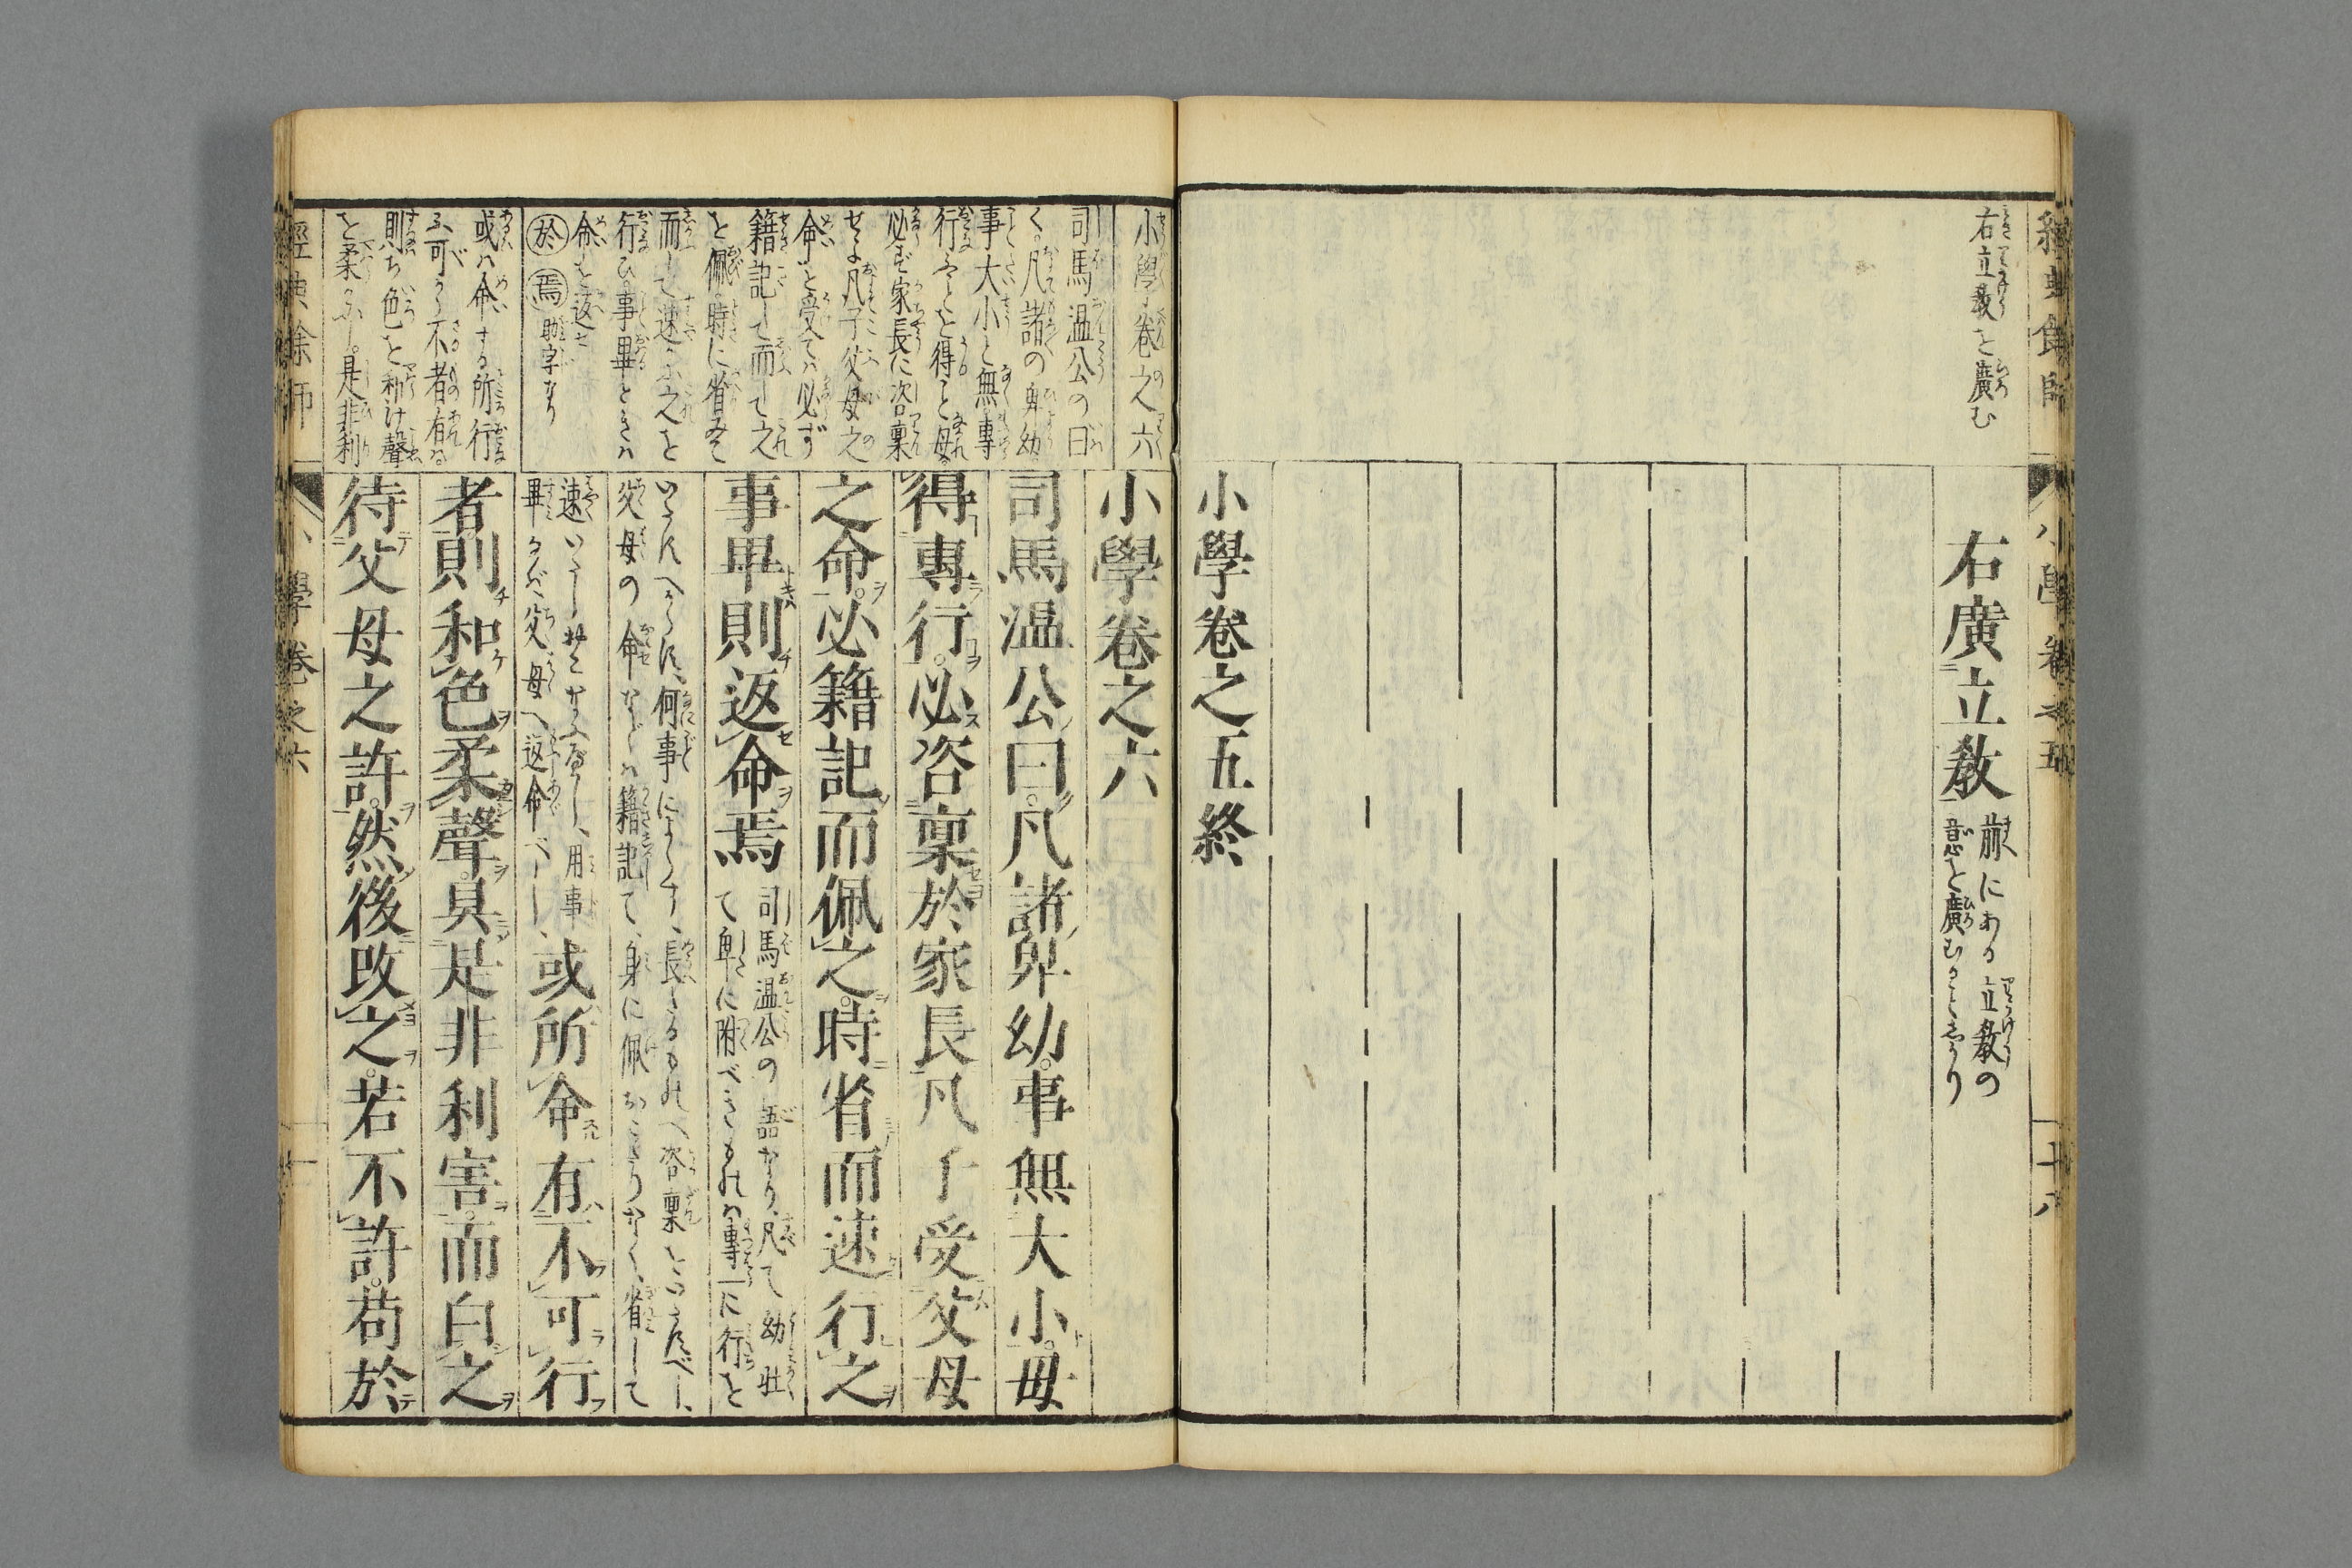 經典餘師
小學卷之五
十八
右立教を廣む
右廣立教
前にある立教の
意を廣むることしかり
小學卷之五終
小學卷之六
司馬温公の曰
く凡諸の卑幼
事大小と無專
行ことを得こと毋
必ず家長に咨禀
せよ凡子父母之
命を受ては必ず
籍記して而して之
を佩時に省みて
而して速に之を
行ひ事畢ときは
命を返せ
於 焉 助字なり
或は命する所行
ふ可から不者有る
則ち色を和け聲
を柔かにし是非利
小學卷之六
司馬温公曰凡諸卑幼事無大小毋
得專行必咨稟於家長凡子受父母
之命必籍記而佩之時省而速行之
事畢則返命焉
司馬温公の語なり凡て幼壮
て卑に附べきものは專一に行を
何事によらす、長たるものへ咨稟をいたすべし、
父母の命などは籍記て、身に佩おこたりなく、省して
速
畢らば父母へ返命べし、
或所命有不可行
者則和色柔聲具是非利害而白之
待父母之許然後改之若不許苟於
經典餘師
小學卷之六